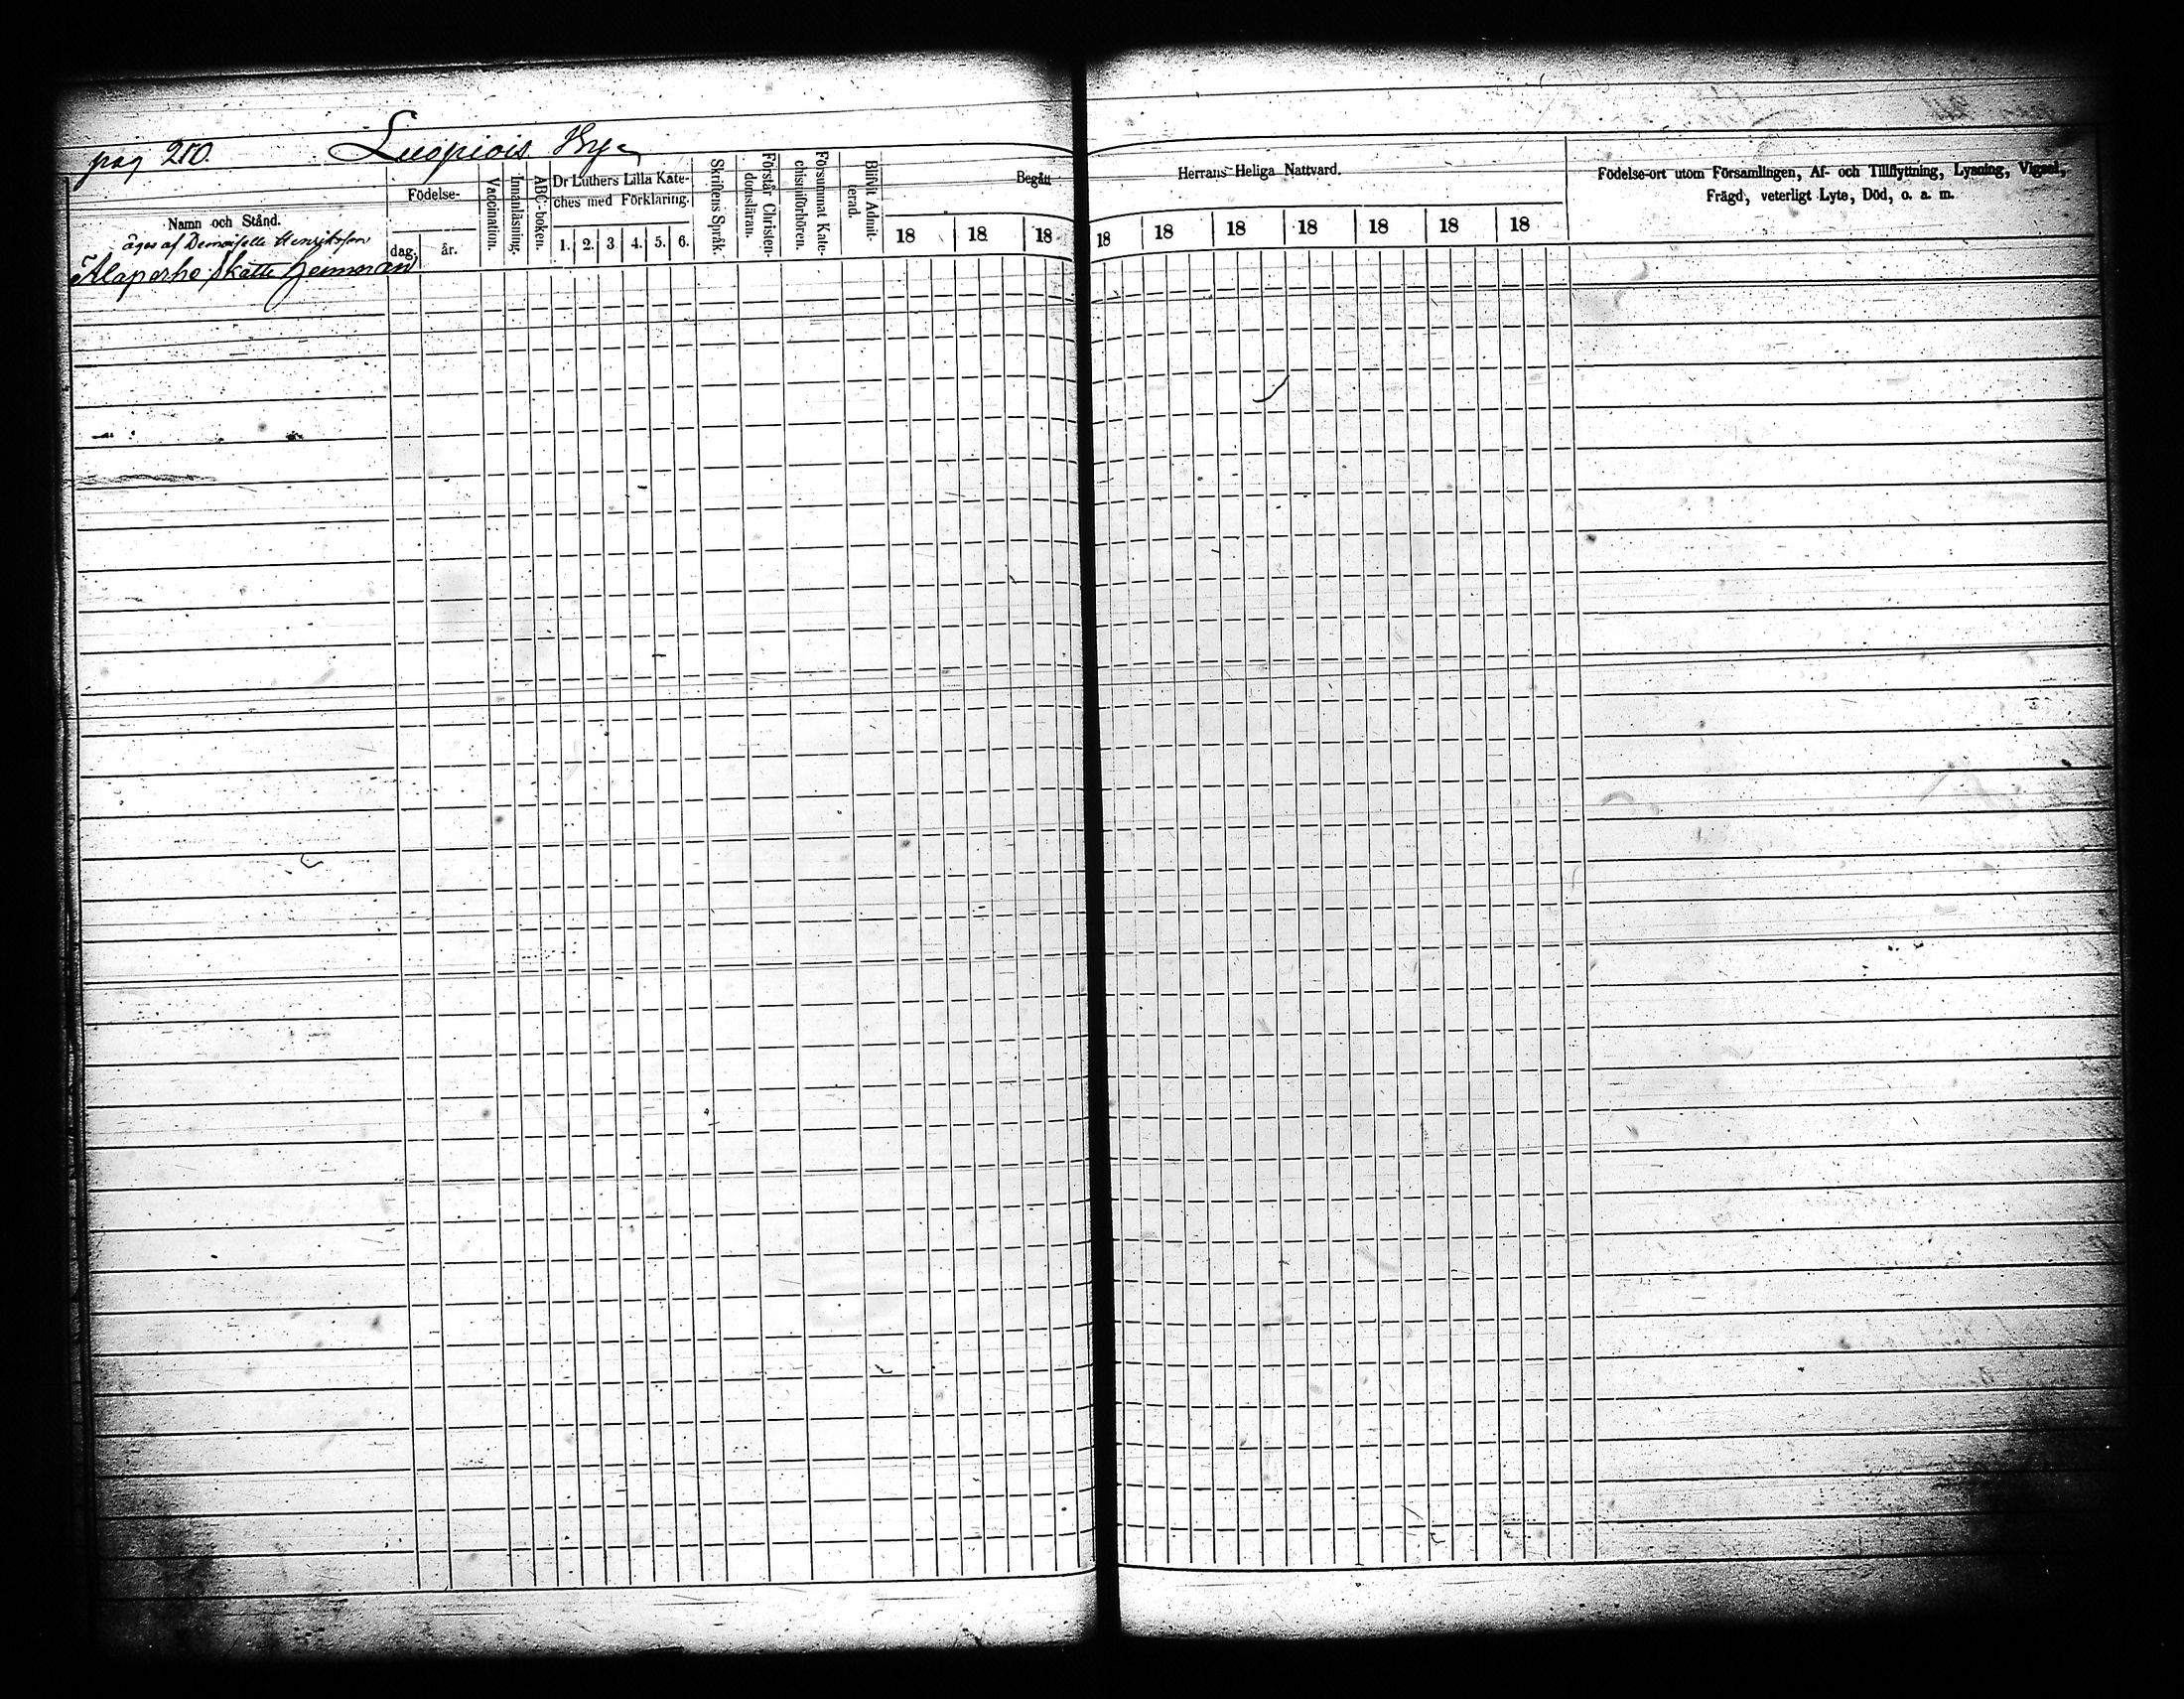 pag 210. Luopiois By
Namn och Stånd.
Födelse-
dag
år.
Vaccination.
Innanläsning.
ABC-boken.
Dr Luthers Lilla Kate-
ches med Förklaring.
1. 2. 3 4. 5. 6.
Skriftens Språk.
Förstår Christen-
domsläran.
Försummat Kate-
chismiförhören.
Blifvit Admit-
terad.
Begått Herrans Heliga Nattvard.
18 18 18 18 18 18 18 18 18 18
Födelse-ort utom Församlingen, Af- och Tillflyttning, Lysning, Vigsel,
Frägd, veterligt Lyte, Död, o. a. m.
äges af Demoiselle Henriksson
Alaperho Skatte hemman